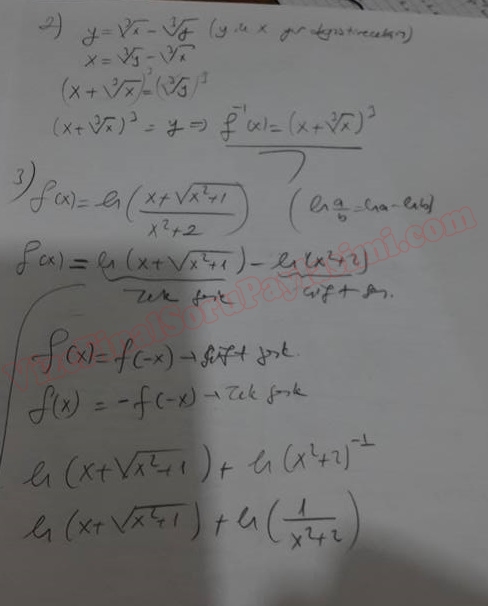 2) y = ∛x - ∛y (y ile x yer değiştirecekler)
x = ∛y - ∛x
(x + ∛x)³ = (∛y)³
(x + ∛x)³ = y ⇒ f⁻¹(x) = (x + ∛x)³
3) f(x) = ln((x + √(x²+1)) / (x²+2)) (ln a/b = lna - lnb)
f(x) = ln(x + √(x²+1)) - ln(x²+2)
Tek fonk çift fon.
f(x) = f(-x) → çift fonk.
f(x) = -f(-x) → Tek fonk
ln(x + √(x²+1)) + ln(x²+2)⁻¹
ln(x + √(x²+1)) + ln(1 / (x²+2))